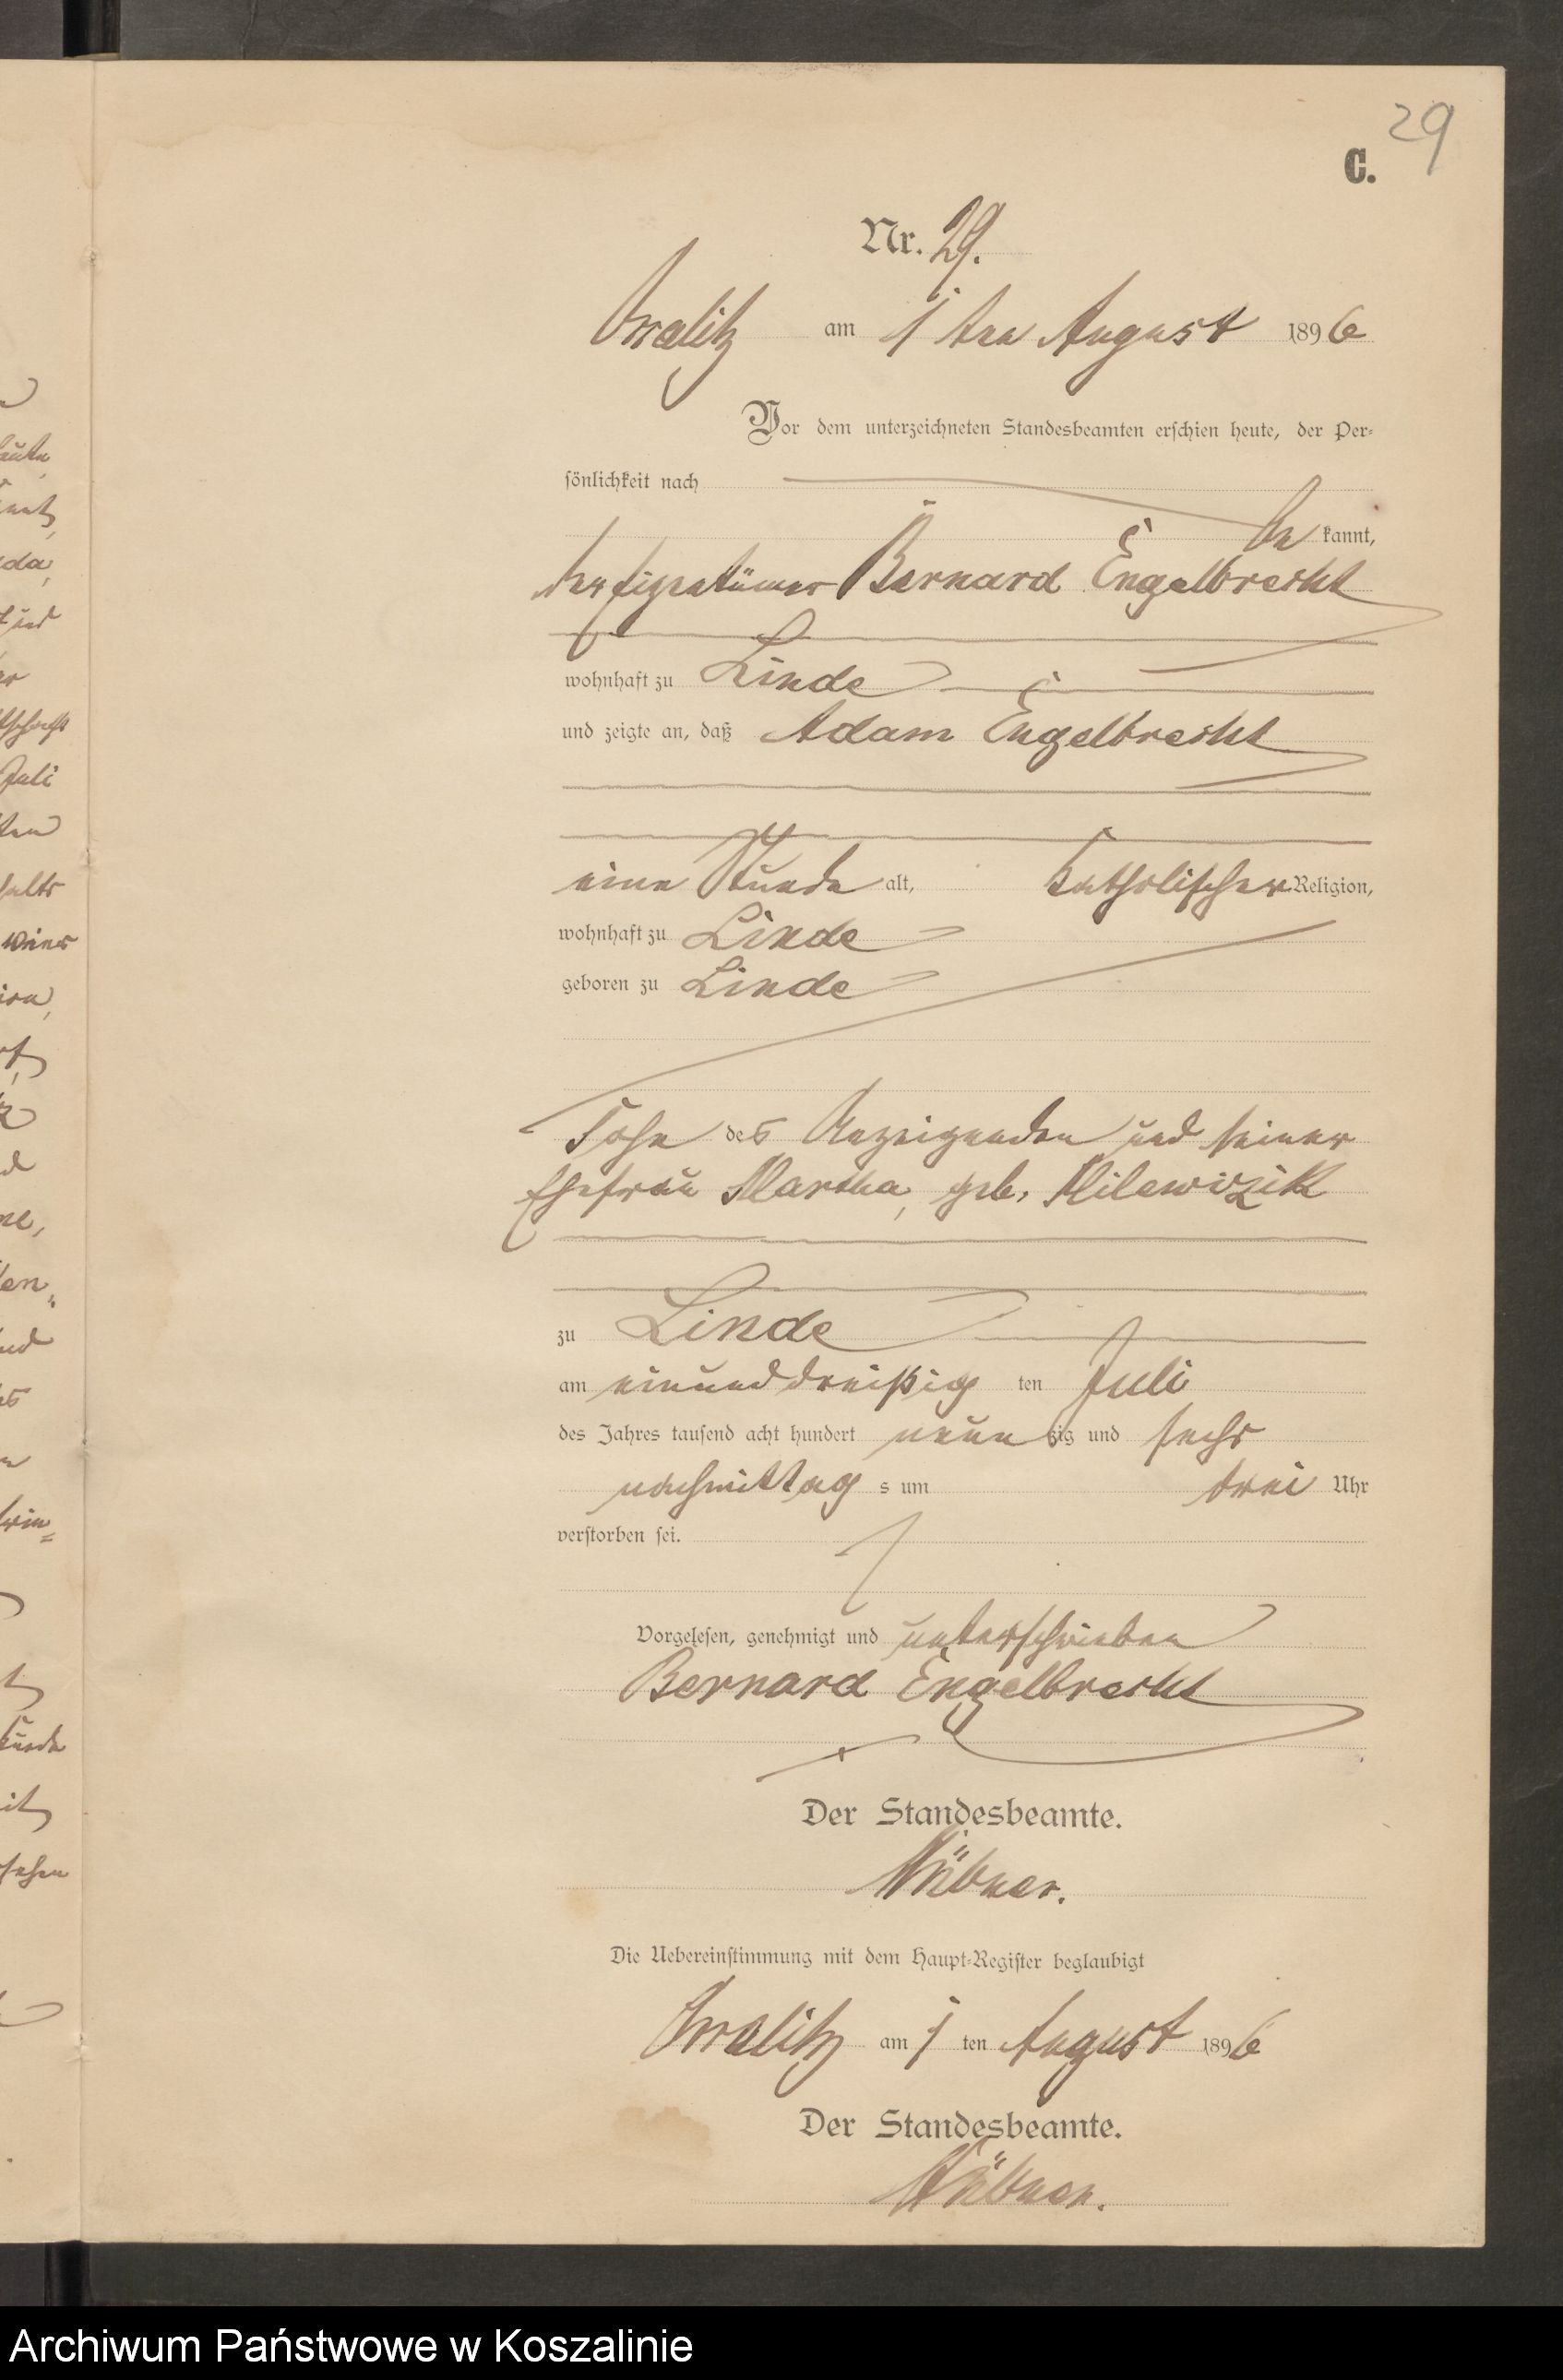 29
C.
Nr. 29.
am 1 ten August 1896
Vor dem unterzeichneten Standesbeamten erschien heute, der Per-
sönlichkeit nach
be kannt,
der Eigentümer Bernard Engelbrecht
wohnhaft zu Linde
und zeigte an, daß Adam Engelbrecht
eine Stunde alt, katholischer Religion,
wohnhaft zu Linde
geboren zu Linde
Sohn des Anzeigenden und seiner
Ehefrau Martha, geb. Milewizik
zu Linde
am einunddreißig ten Juli
des Jahres tausend acht hundert neun zig und sechs
nachmittag s um drei Uhr
verstorben sei.
Vorgelesen, genehmigt und unterschrieben
Bernard Engelbrecht
Der Standesbeamte.
Die Uebereinstimmung mit dem Haupt-Register beglaubigt
am 1 ten August 1896
Der Standesbeamte.
Archiwum Państwowe w Koszalinie